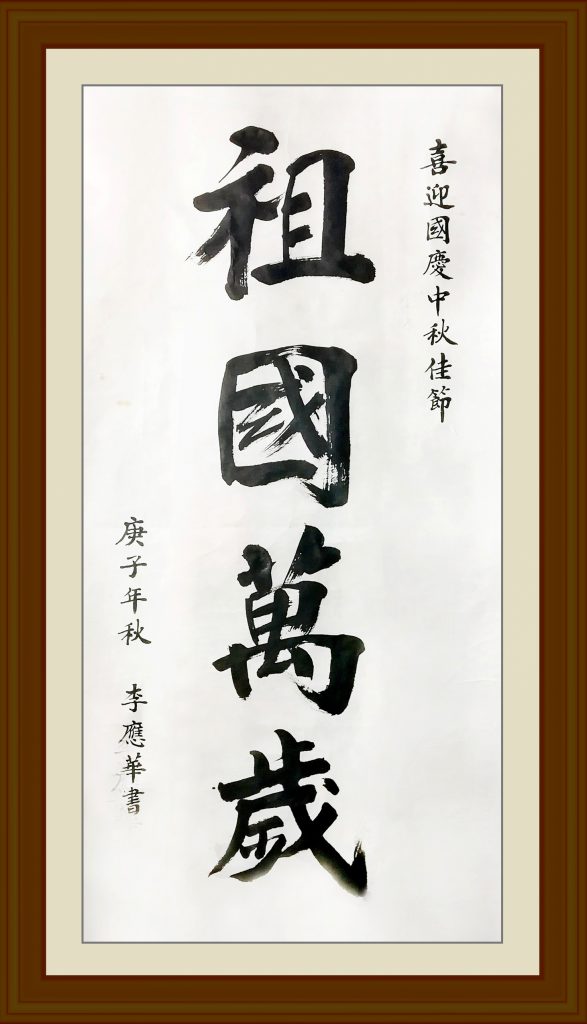 喜迎國慶中秋佳節
祖國萬歲
庚子年秋 李應華書